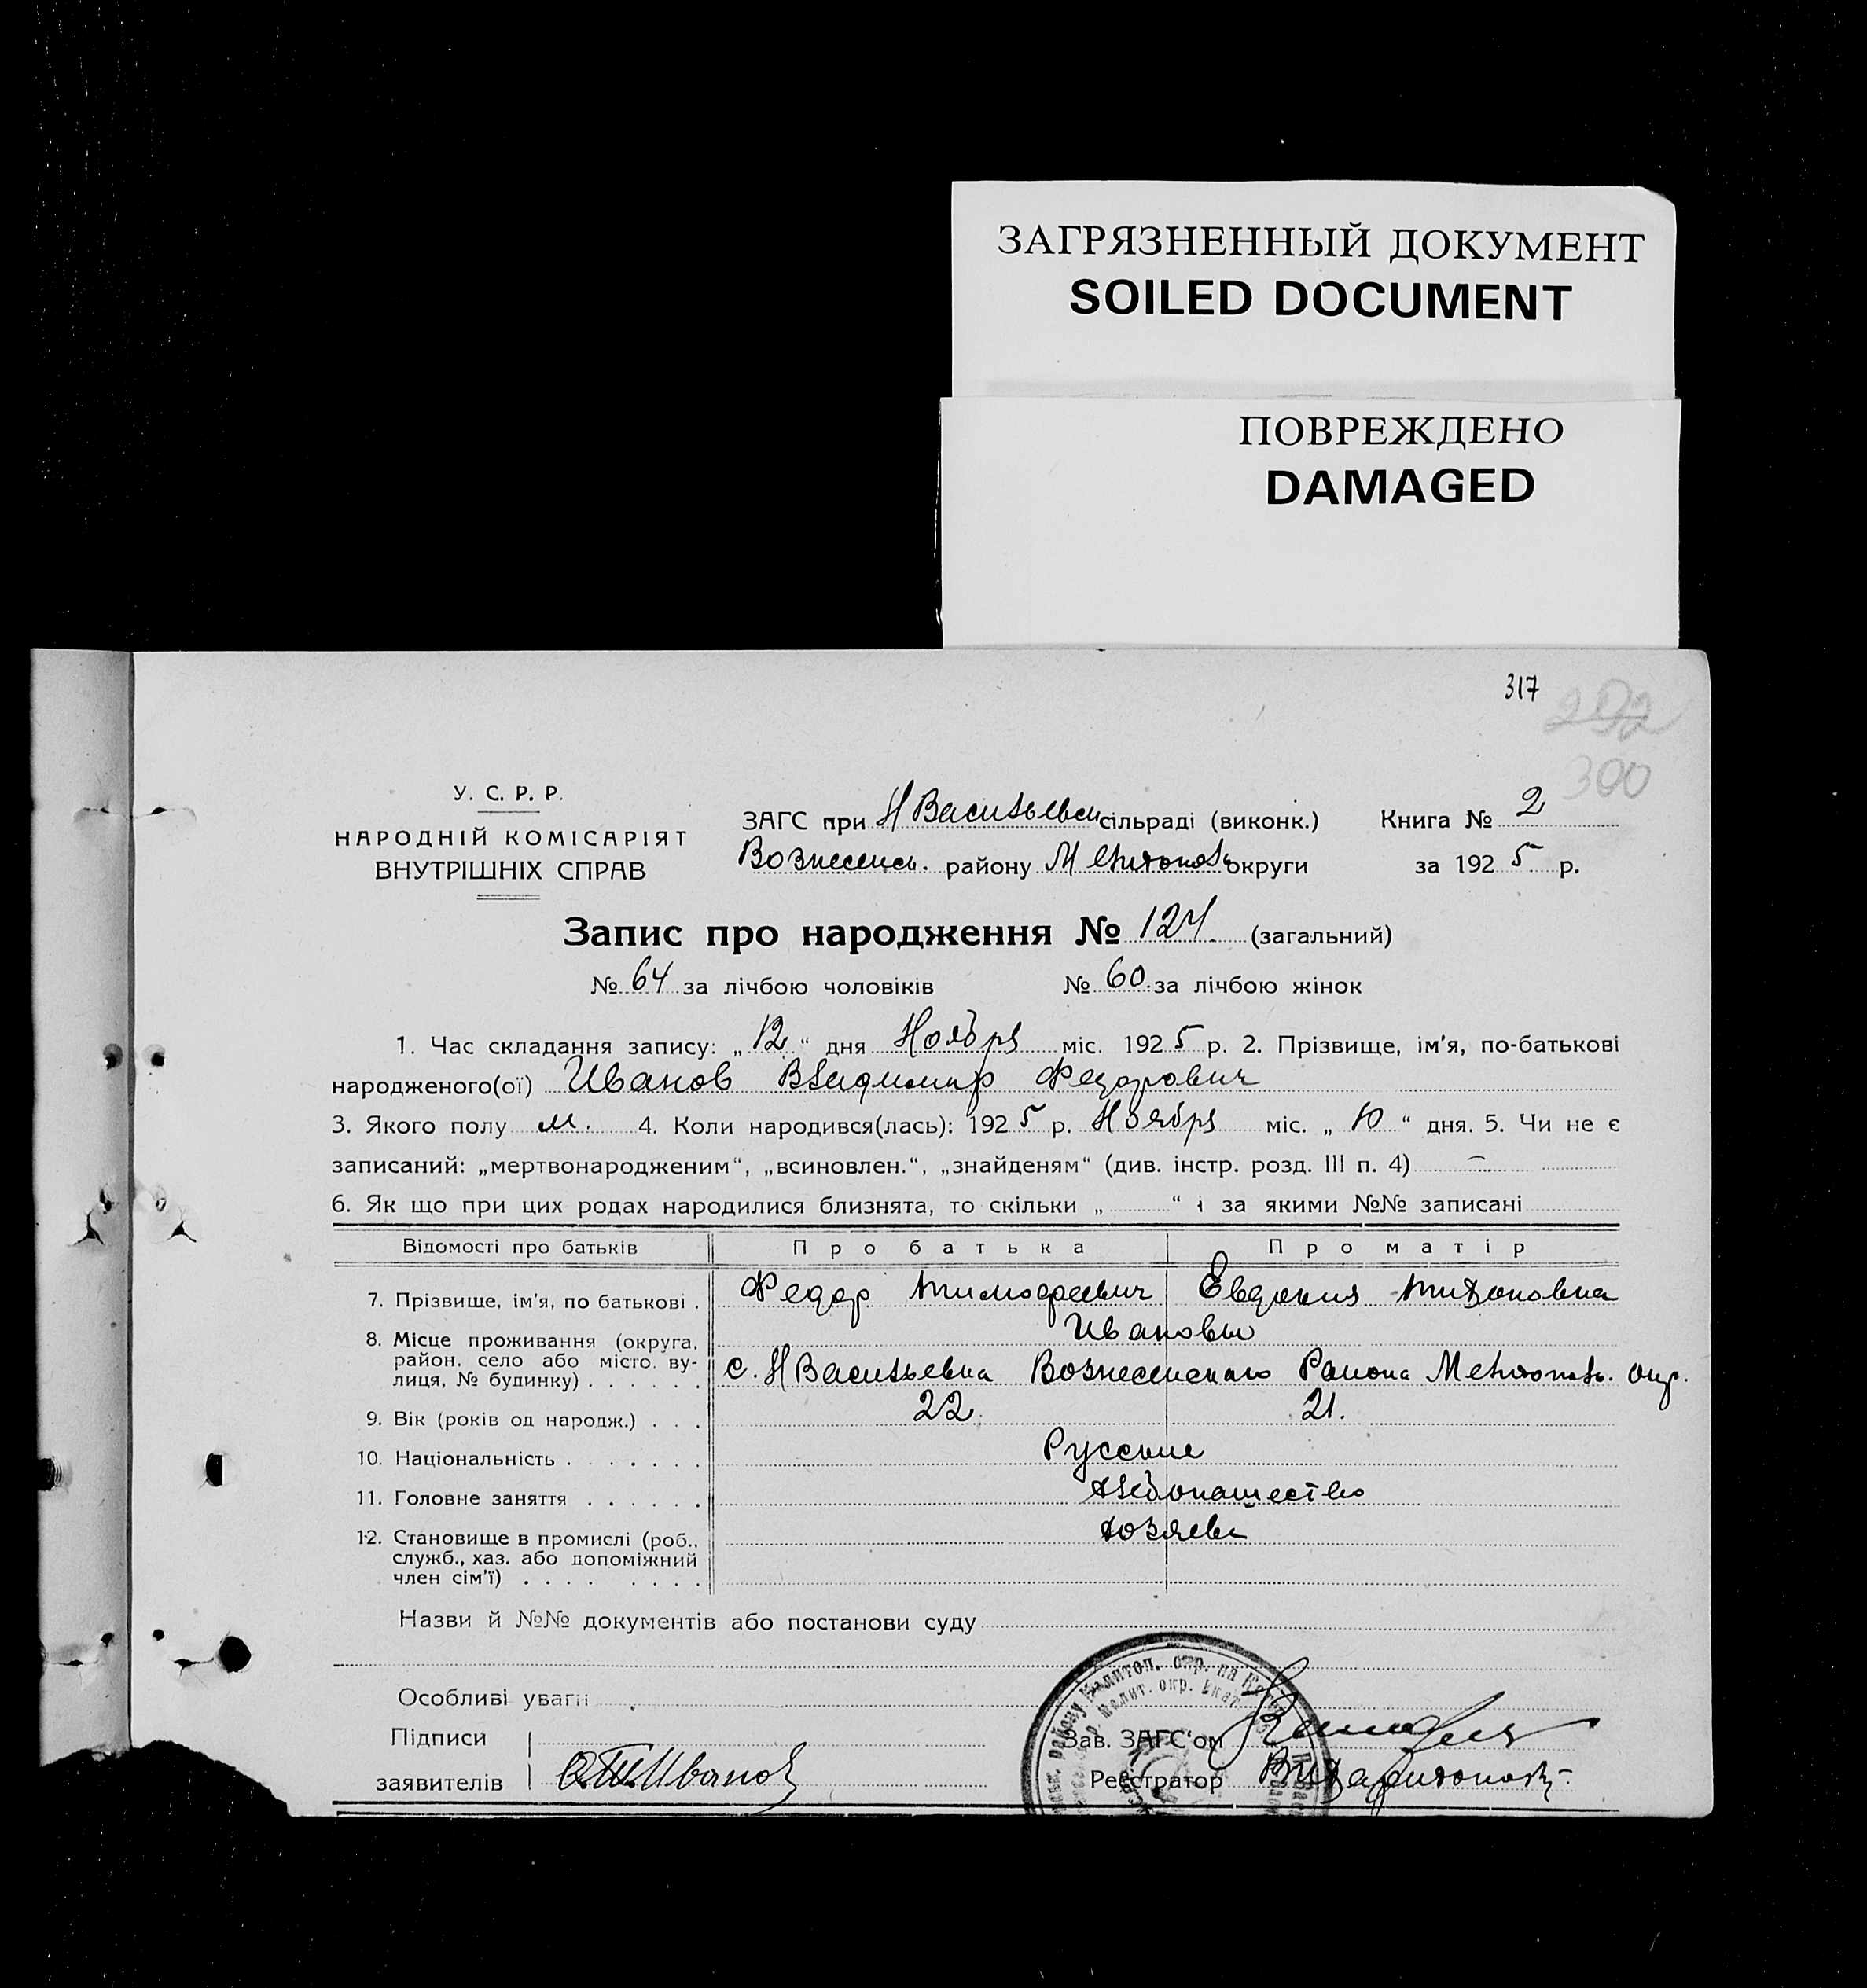 ЗАГРЯЗНЕННЫЙ ДОКУМЕНТ
SOILED DOCUMENT
ПОВРЕЖДЕНО
DAMAGED
317
292
300
У. С. Р. Р.
НАРОДНІЙ КОМІСАРІЯТ
ВНУТРІШНІХ СПРАВ
ЗАГС при Н Васильевск сільраді (виконк.) Книга № 2
Вознесенск. району Мелитопольс округи за 1925 р.
Запис про народження № 124. (загальний)
№ 64 за лічбою чоловіків № 60. за лічбою жінок
1. Час складання запису: „12“ дня Ноября міс. 1925 р. 2. Прізвище, ім’я, по-батькові
народженого(ої) Иванов Владимир Федорович
3. Якого полу м. 4. Коли народився(лась): 1925 р. Ноября міс. „10“ дня. 5. Чи не є
записаний: „мертвонародженим“, „всиновлен.“, „знайденям“ (див. інстр. розд. III п. 4) —
6. Як що при цих родах народилися близнята, то скільки „ “ і за якими №№ записані
Відомості про батьків Про батька Про матір
7. Прізвище, ім’я, по батькові . Федор Тимофеевич Евдокия Тихоновна
Ивановы
8. Місце проживання (округа, район, село або місто, вулиця, № будинку) . . . . . . с. Н Васильевка Вознесенского Района Мелитополь. окр.
9. Вік (років од народж.) . . . 22. 21.
10. Національність . . . . . . . Русские
11. Головне заняття . . . . . . Хлебопашество
12. Становище в промислі (роб., служб., хаз. або допоміжний член сім’ї) . . . . . . . . Хозяева
Назви й №№ документів або постанови суду
Особливі уваги
Підписи
заявителів Иванов
Зав. ЗАГС’ом
Реєстратор В Харитонов